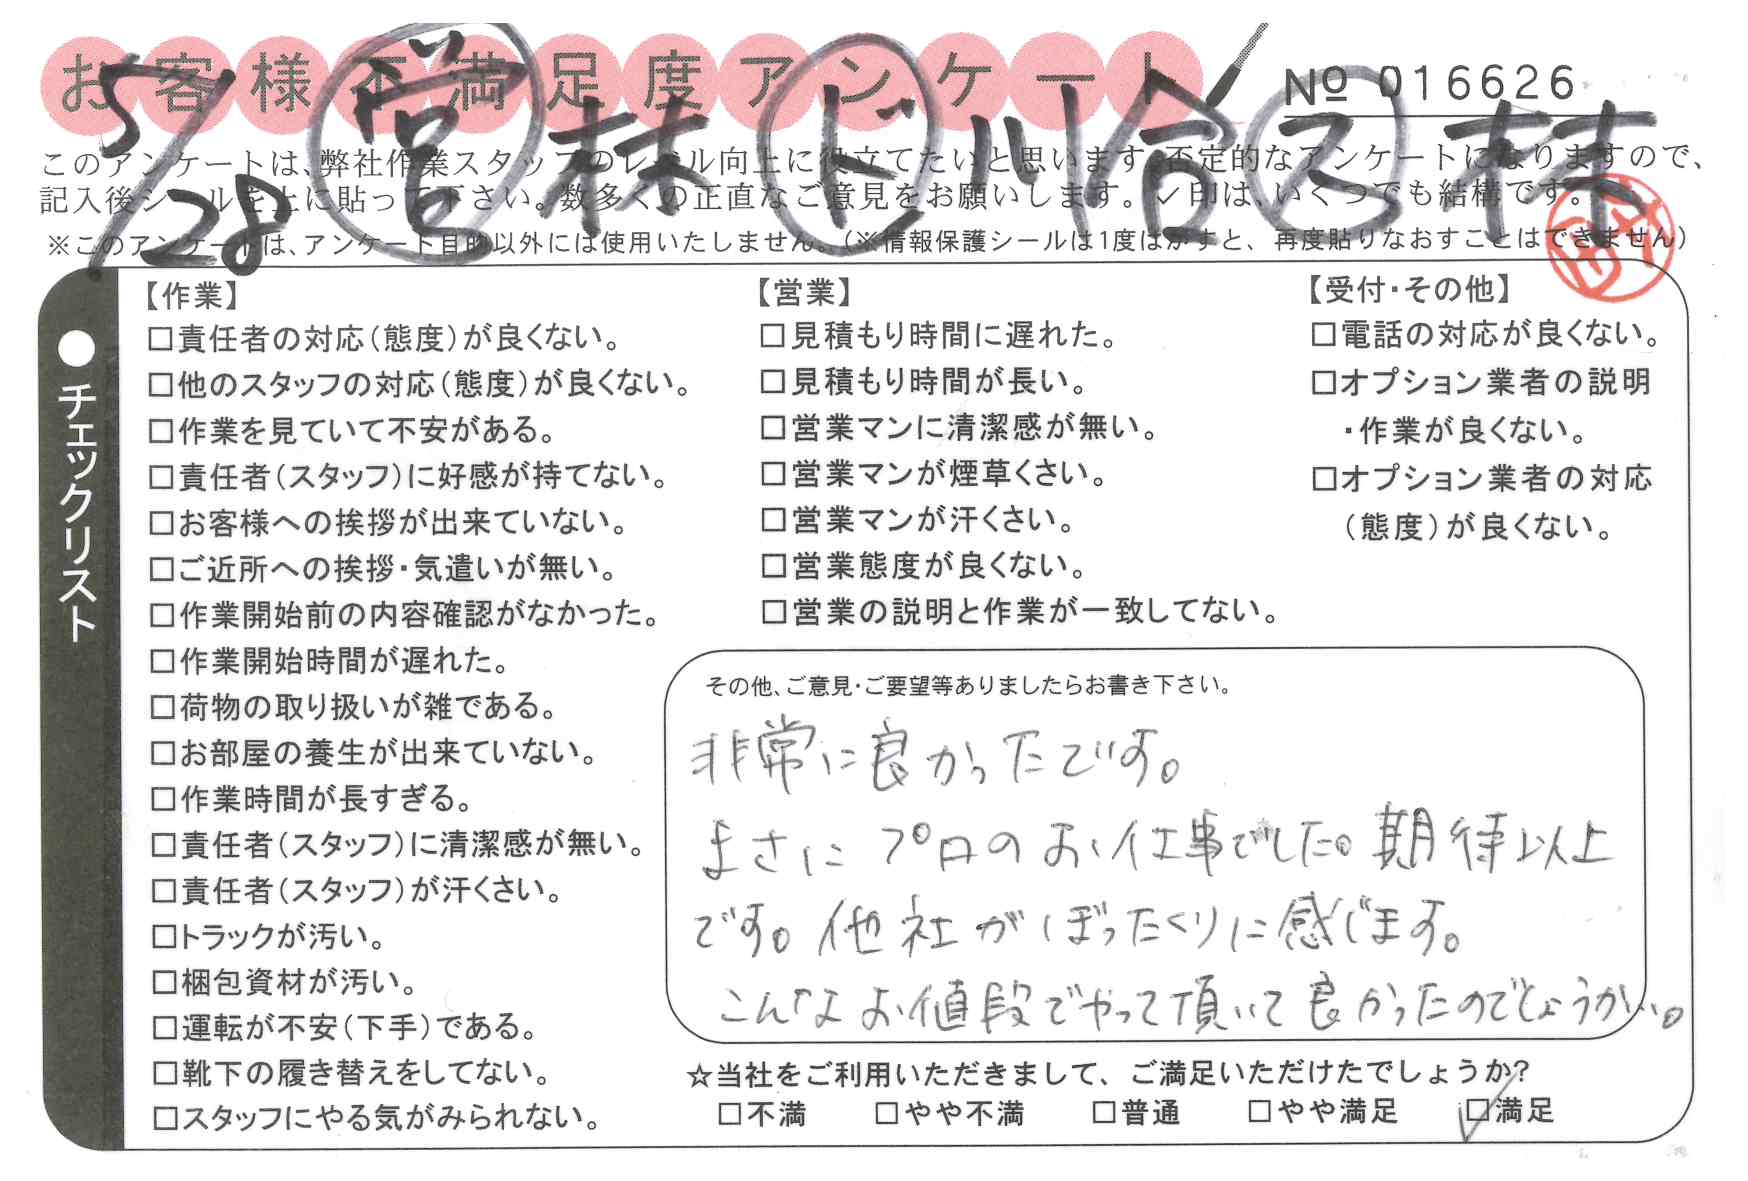 お客様不満足度アンケート
№ 016626
5/28 営 林 ド 川合 ろ 林
このアンケートは、弊社作業スタッフのレベル向上に役立てたいと思います。不定的なアンケートになりますので、
記入後シールを上に貼って下さい。数多くの正直なご意見をお願いします。✓印は、いくつでも結構です。
※このアンケートは、アンケート目的以外には使用いたしません。(※情報保護シールは1度はがすと、再度貼りなおすことはできません)
●チェックリスト
【作業】
□責任者の対応(態度)が良くない。
□他のスタッフの対応(態度)が良くない。
□作業を見ていて不安がある。
□責任者(スタッフ)に好感が持てない。
□お客様への挨拶が出来ていない。
□ご近所への挨拶・気遣いが無い。
□作業開始前の内容確認がなかった。
□作業開始時間が遅れた。
□荷物の取り扱いが雑である。
□お部屋の養生が出来ていない。
□作業時間が長すぎる。
□責任者(スタッフ)に清潔感が無い。
□責任者(スタッフ)が汗くさい。
□トラックが汚い。
□梱包資材が汚い。
□運転が不安(下手)である。
□靴下の履き替えをしてない。
□スタッフにやる気がみられない。
【営業】
□見積もり時間に遅れた。
□見積もり時間が長い。
□営業マンに清潔感が無い。
□営業マンが煙草くさい。
□営業マンが汗くさい。
□営業態度が良くない。
□営業の説明と作業が一致してない。
【受付・その他】
□電話の対応が良くない。
□オプション業者の説明
・作業が良くない。
□オプション業者の対応
(態度)が良くない。
その他、ご意見・ご要望等ありましたらお書き下さい。
非常に良かったです。
まさにプロのお仕事でした。期待以上
です。他社がぼったくりに感じます。
こんなお値段でやって頂いて良かったのでしょうか…。
☆当社をご利用いただきまして、ご満足いただけたでしょうか?
□不満 □やや不満 □普通 □やや満足 ☑満足